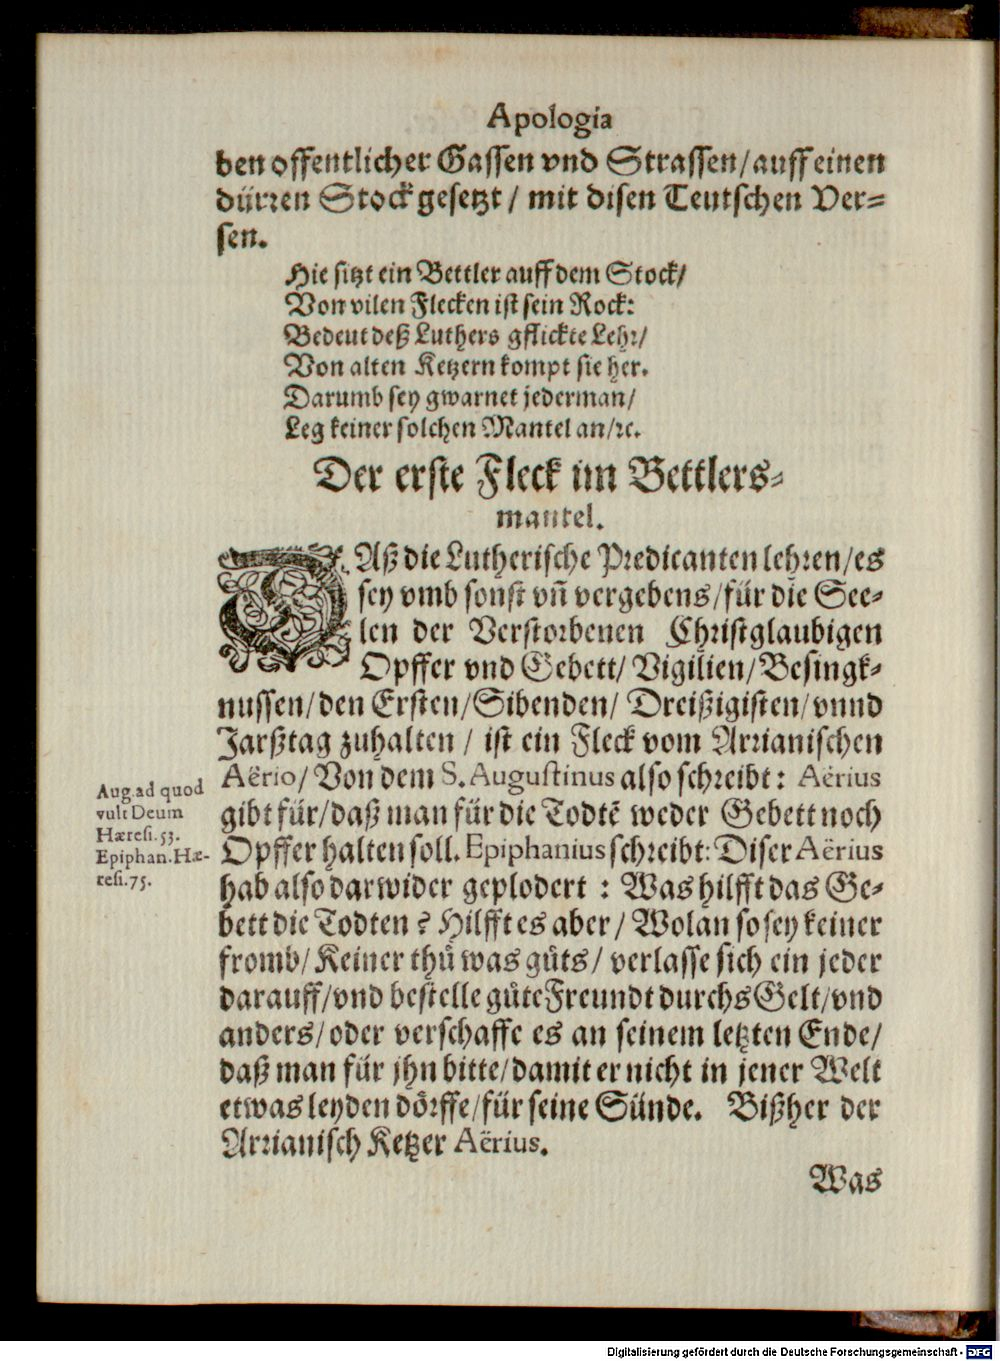 Apologia
ben offentlicher Gassen vnd Strassen/auff einen
dürren Stock gesetzt / mit disen Teutschen Ver=
sen.
Hie sitzt ein Bettler auff dem Stock/
Von vilen Flecken ist sein Rock:
Bedeut deß Luthers gflickte Lehr/
Von alten Ketzern kompt sie her.
Darumb sey gwarnet jederman/
Leg keiner solchen Mantel an/ꝛc.
Der erste Fleck im Bettlers=
mantel.
DAß die Lutherische Predicanten lehren/es
sey vmb sonst vñ vergebens/für die See=
len der Verstorbenen Christglaubigen
Opffer vnd Gebett/ Vigilien/Besingk=
nussen/den Ersten/Sibenden/ Dreißigisten/vnnd
Jarßtag zuhalten / ist ein Fleck vom Arrianischen
Aërio/ Von dem S. Augustinus also schreibt: Aërius
gibt für/daß man für die Todtẽ weder Gebett noch
Opffer halten soll. Epiphanius schreibt: Diser Aërius
hab also darwider geplodert : Was hilfft das Ge=
bett die Todten? Hilfft es aber/ Wolan so sey keiner
fromb/ Keiner thuͦ was guͦts/ verlasse sich ein jeder
darauff/vnd bestelle guͦte Freundt durchs Gelt/vnd
anders/oder verschaffe es an seinem letzten Ende/
daß man für jhn bitte/damit er nicht in jener Welt
etwas leyden doͤrffe/für seine Sünde. Bißher der
Arrianisch Ketzer Aërius.
Aug.ad quod
vult Deum
Hæresi.53.
Epiphan.Hæ-
resi.75.
Was
Digitalisierung gefördert durch die Deutsche Forschungsgemeinschaft - DFG